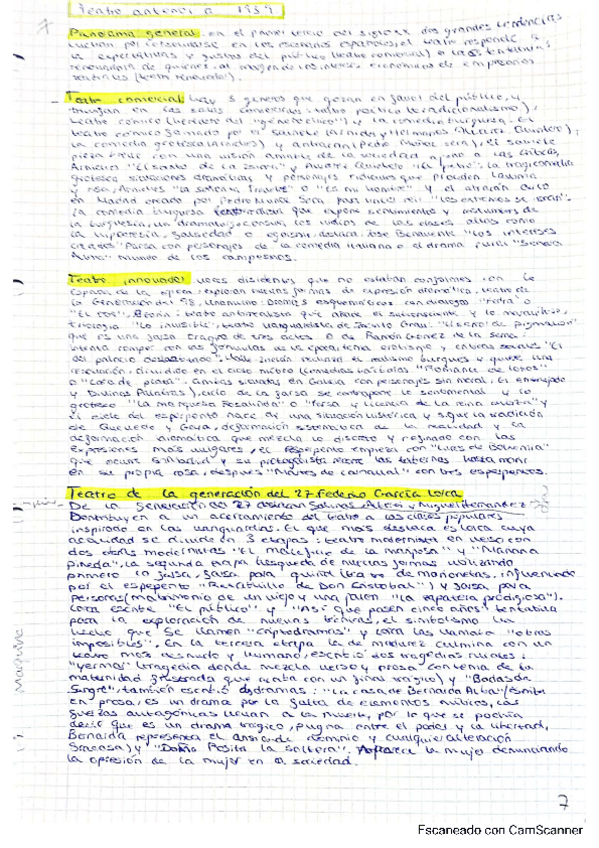 Teatro anterior a 1939
Panorama general, en el primer tercio del siglo XX dos grandes tendencias
luchan por consolidarse en los escenarios españoles, el teatro responde a
las expectativas y gustos del público (teatro comercial) o a las tentativas
renovadoras de quienes, al margen de los intereses económicos de empresarios
(teatro renovador).
Teatro comercial hay 3 generos que gozan en favor del público, y
triunfan en las salas comerciales: teatro poetico (tradicionalismo),
teatro cómico (heredero del "genero chico") y la comedia burguesa. El
teatro cómico formado por el sainete (Arniches y Hermanos Álvarez Quintero);
la comedia grotesca (Arniches) y astracan (Pedro Muñoz Seca), el sainete
pieza breve con una visión amable de la sociedad
Arniches "El santo de la Isidra" y la tragicomedia
grotesca situaciones dramáticas y personajes ridículos que provocan lástima
y risa, Arniches "La señorita Trevélez" o "Es mi hombre" y el astracán
en Madrid creado por Pedro Muñoz Seca "los extremos se tocan".
La comedia burguesa que expone sentimientos y costumbres de
la burguesía, los vicios de las clases altas como
la hipocresía, falsedad o egoismo, destaca José Benavente "Los intereses
creados" Farsa con personajes de la comedia italiana o el drama rural "Señora
Ama" mundo de los campesinos.
Teatro innovador voces disidentes que no estaban conformes con la
de la época, exploran nuevas formas de expresión dramática, teatro de
la Generación del 98, Unamuno: Dramas esquemáticos con dialogos "Fedra" o
"El otro", Azorín: teatro antirrealista que
trilogía "Lo invisible", teatro vanguardista de Jacinto Grau: "El señor de pigmalión"
que es una farsa tragica de tres actos o de Ramón Gómez de la Serna
intenta romper con las formulas de la época, "El
del palacio deshabitado". Valle-Inclán rechaza el realismo burgues y quiere una
renovación, dividido en el ciclo mítico (Comedias bárbaras "Romance de lobos"
o "Cara de plata". Ambas situadas en Galicia con personajes sin moral, El embrujado
y Divinas Palabras), ciclo de la farsa se contrapone lo sentimental y lo
grotesco "La marquesa Rosalinda" o "Farsa y licencia de la reina castiza" y
el ciclo del esperpento nace de una situación histórica y sigue la tradición
de Quevedo y Goya, deformación sistemática de la realidad y la
deformación idiomática que mezcla lo discreto y refinado con las
expresiones más vulgares, el esperpento empieza con "Luces de Bohemia"
que ocurre y su protagonista recorre las tabernas hasta morir
en su propia, después "Martes de carnaval" con tres esperpentos.
Teatro de la generación del 27. Federico García Lorca
De la Generación del 27 destacan Salinas, Alberti y Miguel Hernandez
Contribuyen a un acercamiento del teatro a las clases populares
inspirado en las vanguardias. El que mas destaca es Lorca cuya
actividad se divide en 3 etapas: teatro modernista en verso con
dos obras modernistas "El maleficio de la mariposa" y "Mariana
Pineda", la segunda etapa búsqueda de nuevas formas utilizando
primero la farsa, farsa para guiñol (obras de marionetas, influenciado
por el esperpento "Retablillo de Don Cristobal") y farsa para
personas (matrimonio de un viejo y una joven "La zapatera prodigiosa").
Lorca escribe "El público" y "Así que pasen cinco años" tentativa
para la exploración de nuevas técnicas, el simbolismo ha
hecho que se llamen "criptodramas" y Lorca las llamaba "obras
imposibles". En la tercera etapa la de madurez culmina con un
teatro más desnudo y humano, escribió dos tragedias rurales:
"Yerma" (tragedia donde mezcla verso y prosa con tema de la
maternidad frustrada que acaba con un final trágico) y "Bodas de
Sangre", también escribió dos dramas: "La casa de Bernarda Alba" (escrito
en prosa, es un drama por la falta de elementos míticos, las
fuerzas antagónicas llevan a la muerte, por lo que se podría
decir que es un drama trágico, pugna entre el poder y la libertad,
Bernarda representa el ansia de dominio y cualquier alteración
fracasa) y "Doña Rosita la soltera". Aparece la mujer denunciando
la opresión de la mujer en la sociedad.
7
Escaneado con CamScanner